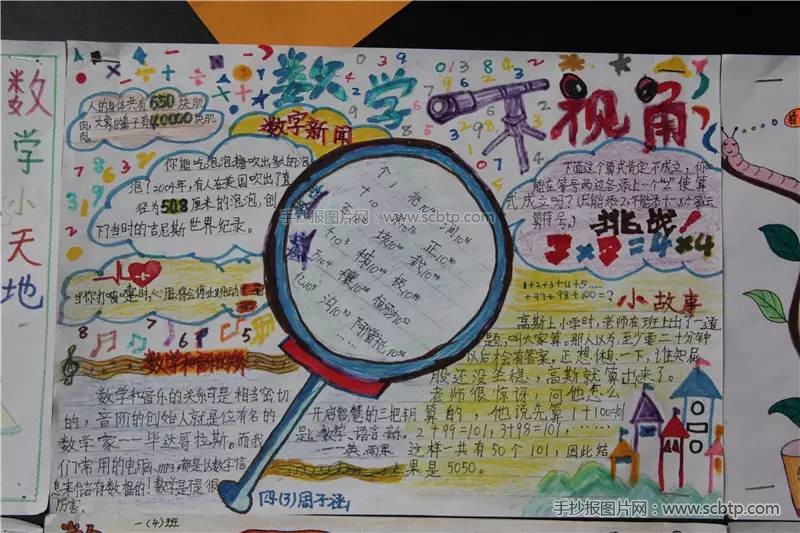 数学小天地
数学
视角
人的身体共有650块肌
肉,大象的鼻子有40000块肌
肉
数字新闻
你能吃泡泡糖吹出多大的泡
泡?2004年,有人在美国吹出了直
径为50.8厘米的泡泡,创
下了当时的吉尼斯世界纪录。
当你打喷嚏时,心脏会停止跳动
数学和音乐
数学和音乐的关系可是相当密切
的,音阶的创始人就是位有名的
数学家——毕达哥拉斯。而我
们常用的电脑、mp3,都是以数字信
息来储存数据的!数学是不是很
厉害。
个
十
千10³
万10⁴
亿10⁸
兆
涧
正
载
极
穰
恒河沙
开启智慧的三把钥
是:数学、语言、音
——英.雨果
四.(3)周子涵
下面这个算式肯定不成立,你
能在等号两边各添上一个
使算
式成立吗?
挑战!
2×2=4×4
1+2+3+4+5……
+97+98+100=?
小故事
高斯上小学时,老师在班上出了一道
题,叫大家算。那人以为,至少要二十分钟
以后才会有答案,正想休息一下,谁知屁
股还没坐稳,高斯就算出来了。
老师很惊讶,问他怎么
算的,他说先算1+100=101
2+99=101,3+98=101,……
这样一共有50个101,因此结
果是5050。
手抄报图片网·www.scbtp.com
手抄报图片网
www.scbtp.com
一(4)班